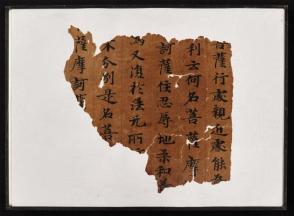 薩行處親近處能
利云何名菩薩摩
訶薩住忍辱地柔和
又復於法无所
不分別是名菩
薩摩訶